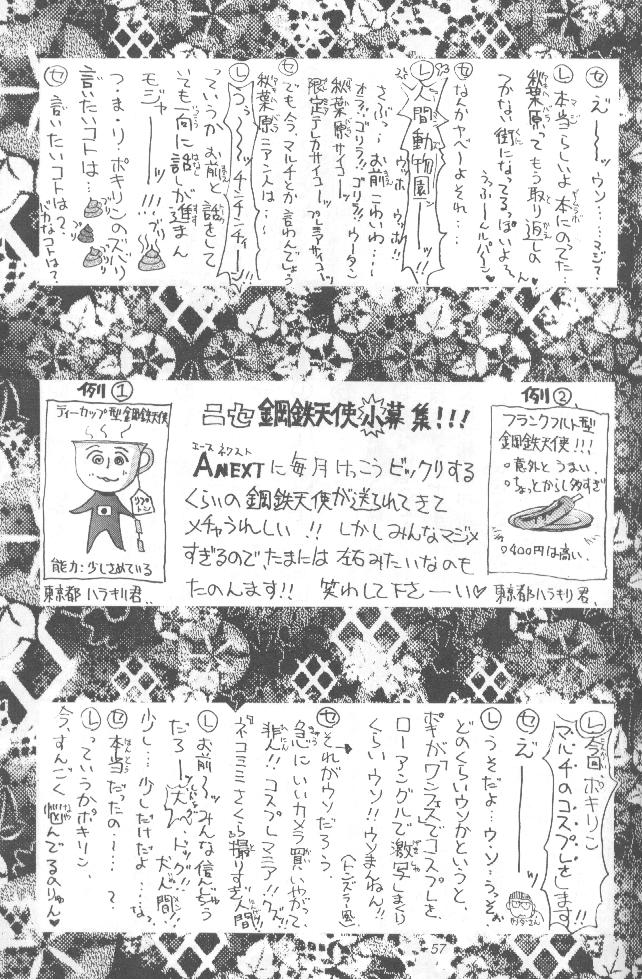 セ え——〜ッ ウソ…‥マジ?
L 本当らしいよ 本にのってた…
秋葉原ってもう取り返しの
つかない街になってるっぽいよ〜
うっふ〜んルパーン♥
セ なんかヤベーよそれ…
L 人間動物園——ッ!!
ウッホ ウッホ!!
さぶっ…お前こわいわ…
オラ、ゴリラ!!ゴリラ!!ウータン
秋葉原サイコー
限定テレカサイコー プレミアサイコー
セ でも今、マルチとか言わんでしょう
秋葉原ミアン人は…
L つぅ——〜 チーンチンチィーン!!
っていうかお前と話をして
いても一向に話しが進まん
モジャ———ッ!!
つ・ま・り・ポキリンのズバリ
言いたいコトは…
セ 言いたいコトは?
バカなコトは?
例①
ティーカップ型鋼鉄天使
リプトン
能力:少しさめている
東京都 ハラキリ君、
鋼鉄天使小募集!!!
エース ネクスト
A NEXTに毎月けっこうビックリする
くらいの鋼鉄天使が送られてきて
メチャうれしい!! しかしみんなマジメ
すぎるので、たまには左右みたいなのも
たのんます!! 笑わして下さーい♥
例②
フランクフルト型
鋼鉄天使!!!
○意外とうまい、
○ちょっとからし多すぎ
○400円は高い、
東京都ハラキリ君、
L 今回ポキリン
マルチのコスプレをします!!
セ え———ッ
L うそだよ…ウソ…うっそぉ
どのくらいウソかというと、
ポキが「ワンフェス」でコスプレを、
ローアングルで激写しまくり
くらいウソ!!ウソまんねん!!
(トンズラー風)
セ それがウソだろう
急にいいカメラ買いやがって
非人!!コスプレマニア!!クズ!!
ネコミミさくら撮りすぎ人間!!
L お前〜ッみんな信じちゃう
だろーッ犬、ドッグ!!犬人間!!
少し…少しだけだよ…なっ
セ 本当だったの〜…?
L っていうかポキリン、
今、すんごく悩んでるのりゅん♥
57